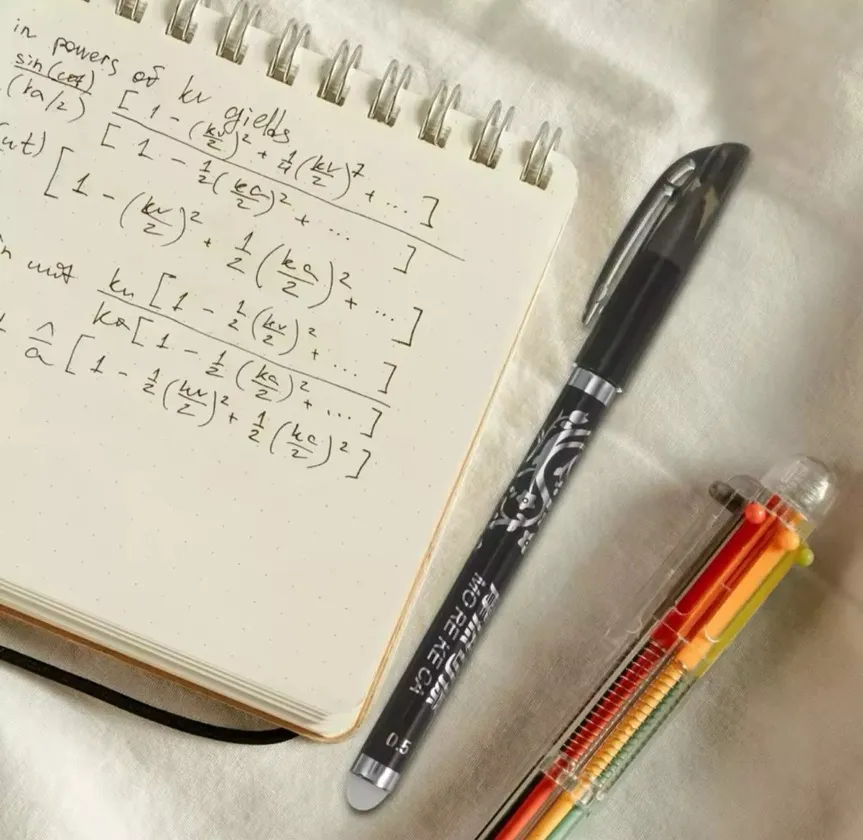 in powers of kv yields
sin(ωt) [1 - (kv/2)² + 1/4(kv/2)⁷ + ...]
(ka/2) [1 - 1/2(ka/2)² + ... ]
(ωt) [1 - (kv/2)² + 1/2(ka/2)² + ...]
unit kv [1 - 1/2(kv/2)² + ... ]
ka [1 - 1/2(ka/2)² + ...]
^/a [1 - 1/2(kv/2)² + 1/2(ka/2)²]
MO RE KE CA
0.5